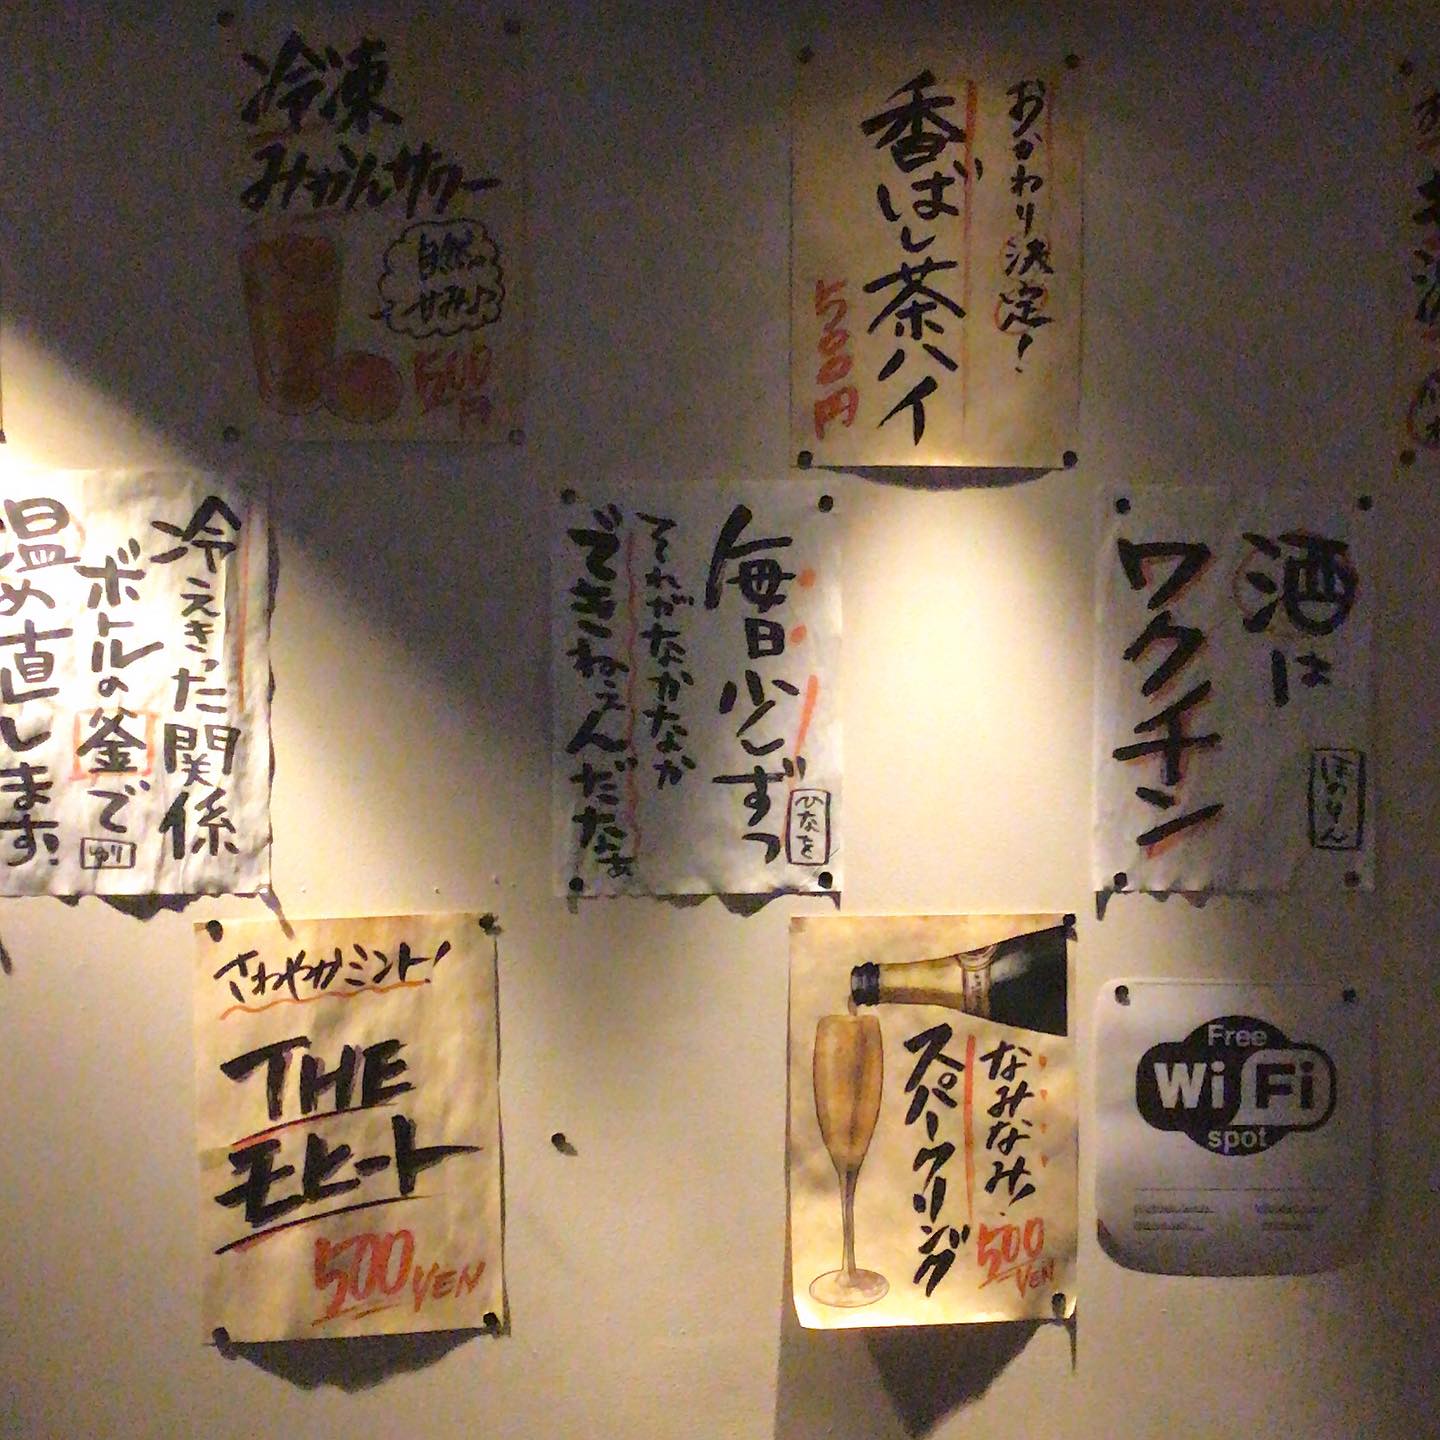 冷凍
みかんサワー
自然の
甘み♪
500
円
おかわり決定！
香ばし茶ハイ
500円
冷えきった関係
ボトルの釜で
温め直します！
ゆり
毎日少しずつ
それがなかなか
できねえんだなぁ
ひなを
酒は
ワクチン
さわやかミント！
THE
モヒート
500YEN
なみなみ！
スパークリング
500
YEN
Free
Wi Fi
spot